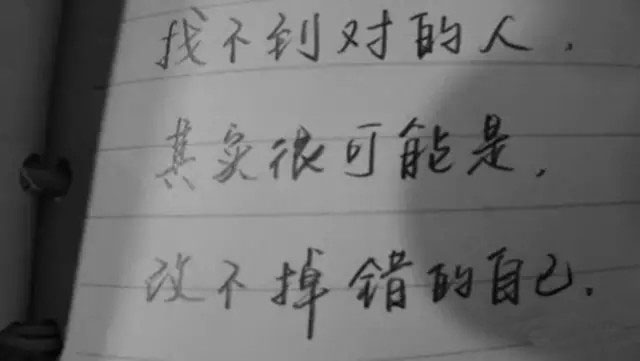 找不到对的人，
其实很可能是，
改不掉错的自己．